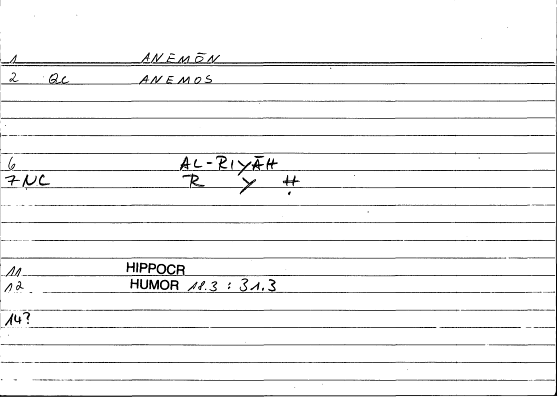 1 ANEMŌN
2 QC ANEMOS
6 AL-RIYĀḤ
7 NC R Y Ḥ
11 HIPPOCR
12 HUMOR 18.3 : 31.3
14?